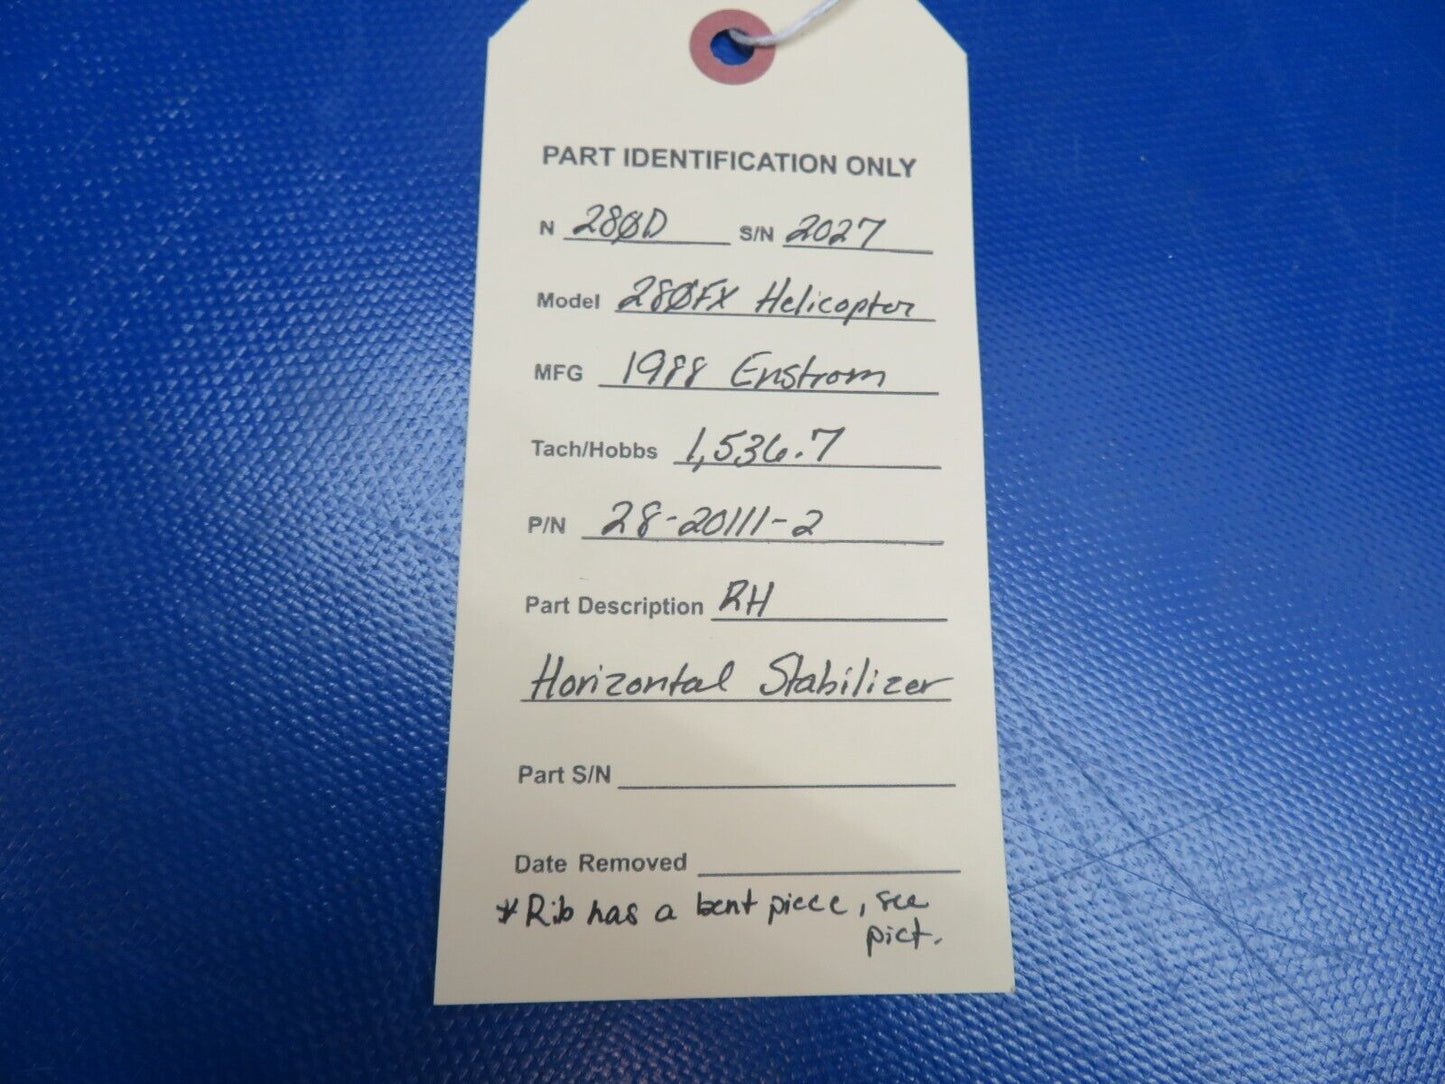 PART IDENTIFICATION ONLY
N 28ØD S/N 2027
Model 28ØFX Helicopter
MFG 1988 Enstrom
Tach/Hobbs 1,536.7
P/N 28-20111-2
Part Description RH
Horizontal Stabilizer
Part S/N
Date Removed
*Rib has a bent piece, see
pict.